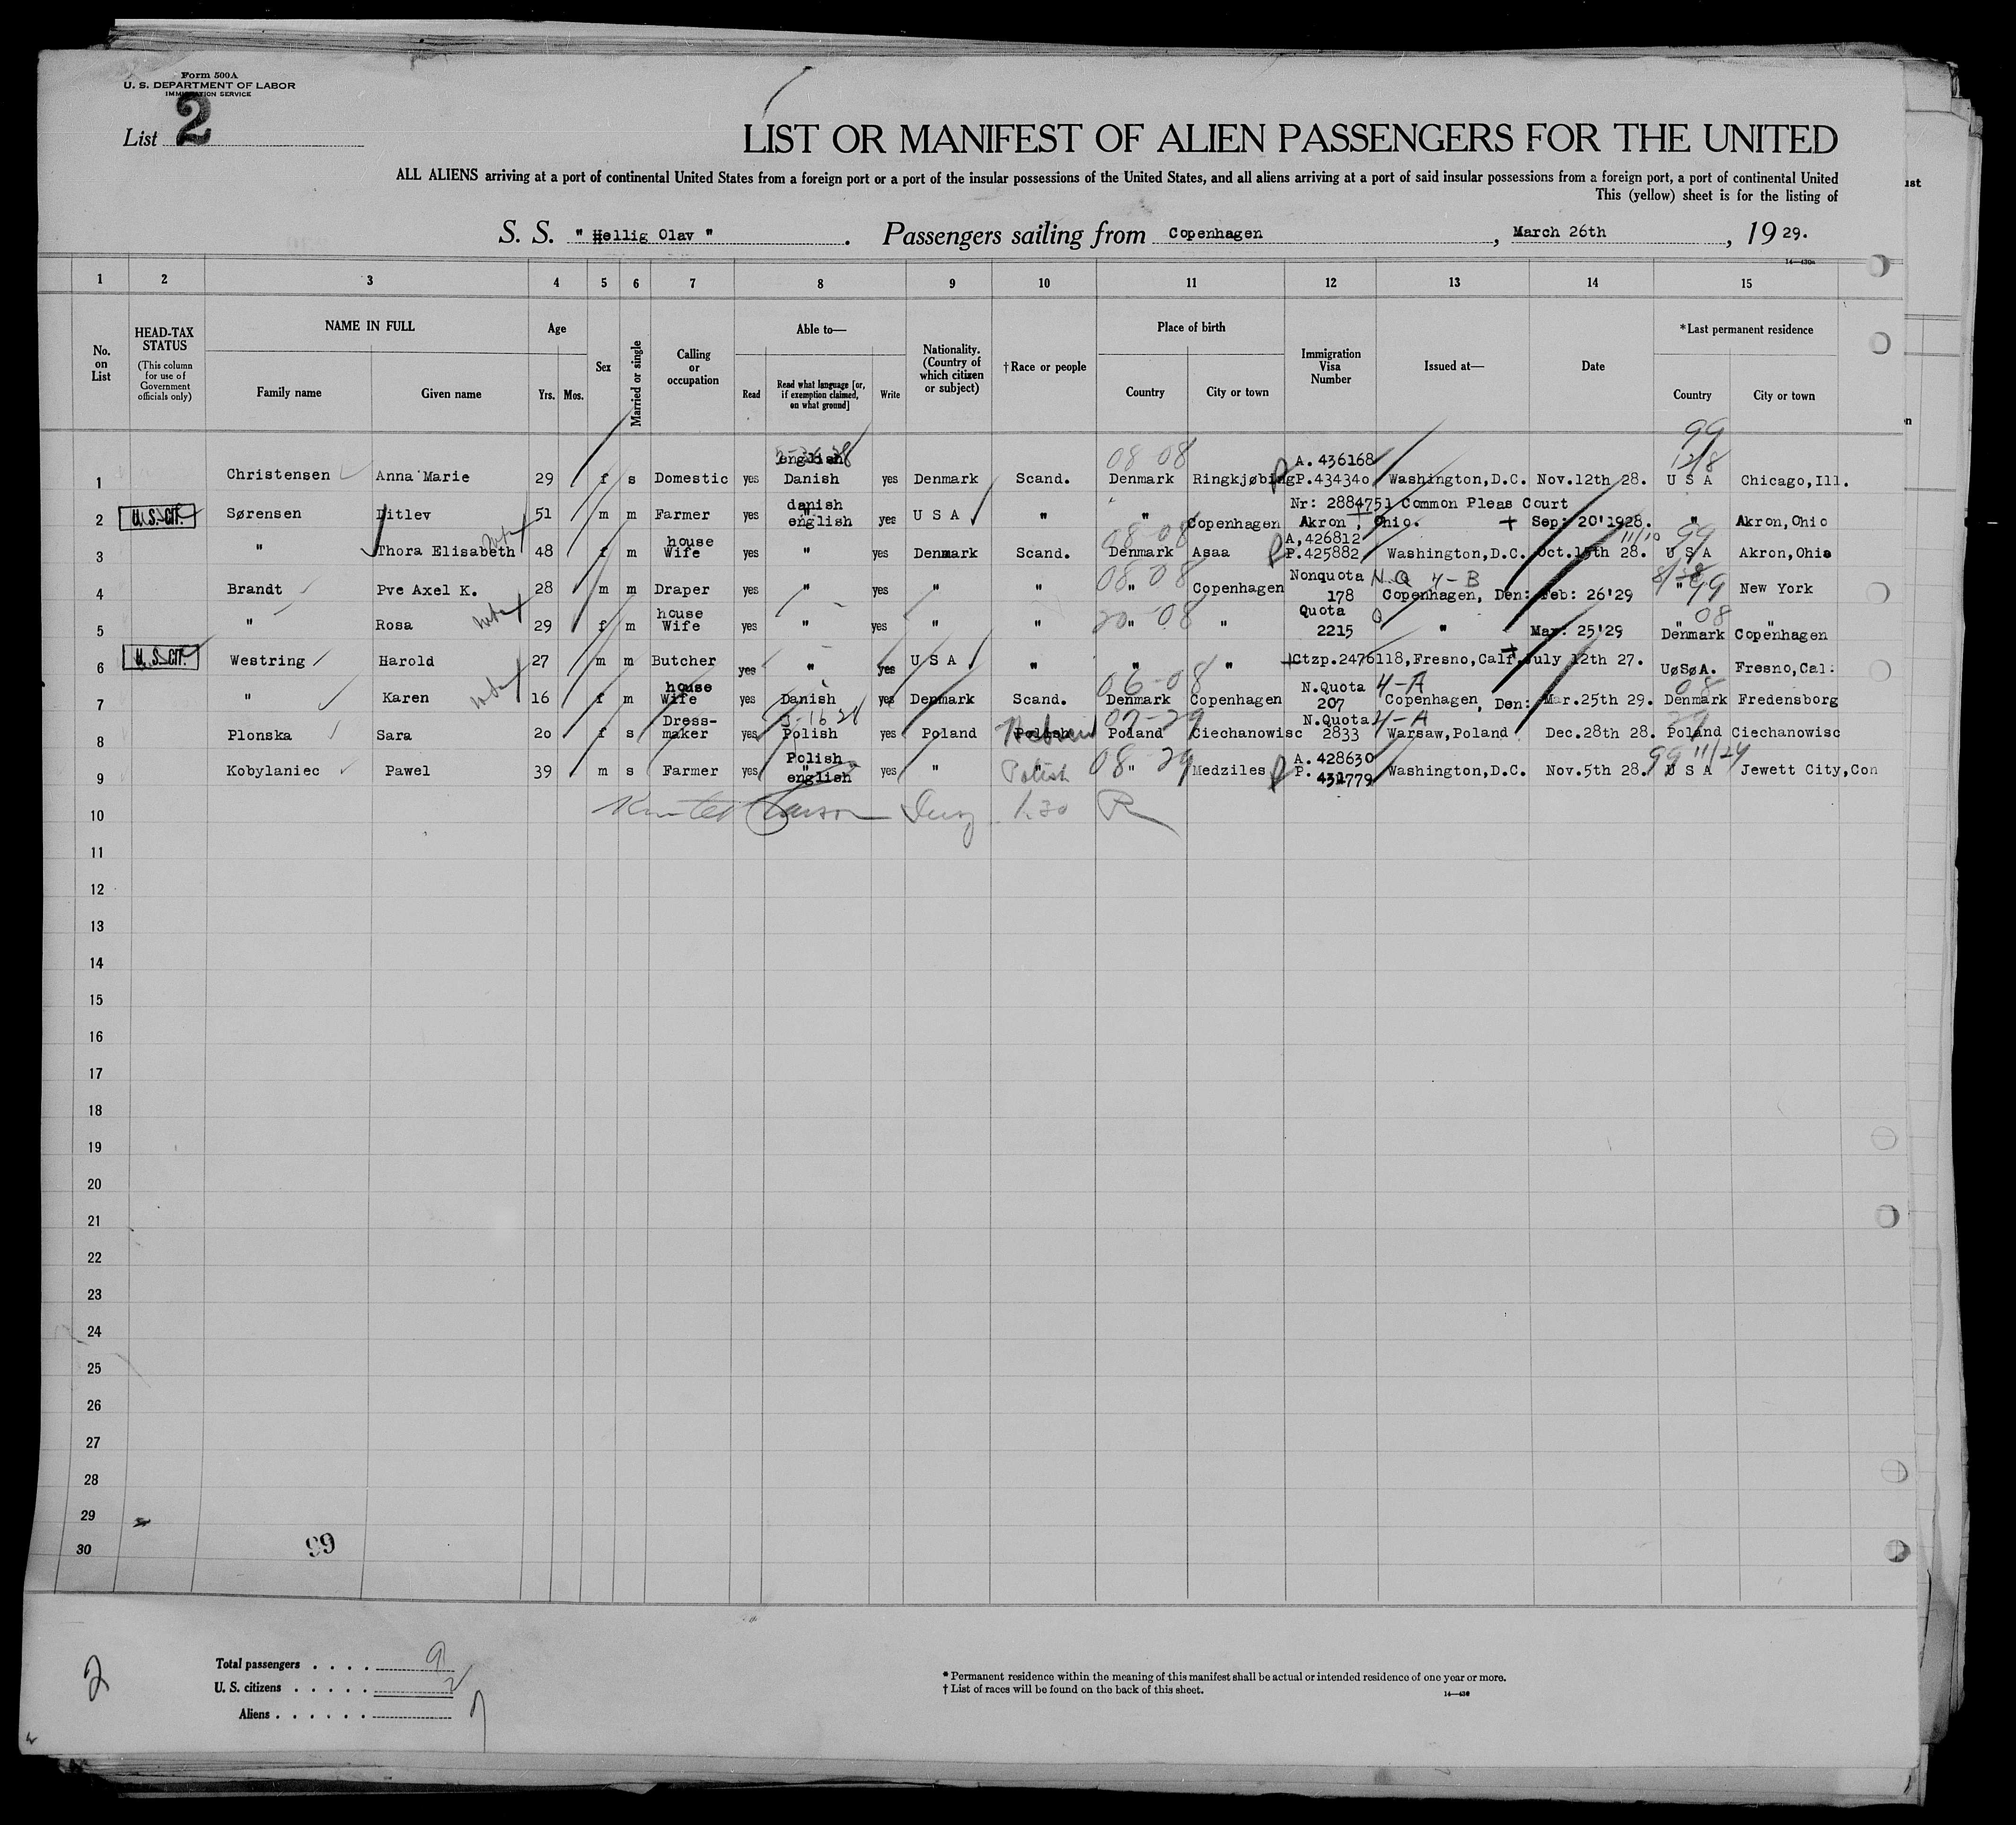 Form 500A
U. S. DEPARTMENT OF LABOR
IMMIGRATION SERVICE
List 2
LIST OR MANIFEST OF ALIEN PASSENGERS FOR THE UNITED
ALL ALIENS arriving at a port of continental United States from a foreign port or a port of the insular possessions of the United States, and all aliens arriving at a port of said insular possessions from a foreign port, a port of continental United
This (yellow) sheet is for the listing of
S. S. " Hellig Olav " . Passengers sailing from Copenhagen , March 26th , 19 29.
1 2 3 4 5 6 7 8 9 10 11 12 13 14 15
No. on List
HEAD-TAX STATUS
(This column for use of Government officials only)
NAME IN FULL
Family name Given name
Age
Yrs. Mos.
Sex
Married or single
Calling or occupation
Able to—
Read Read what language [or, if exemption claimed, on what ground] Write
Nationality. (Country of which citizen or subject)
†Race or people
Place of birth
Country City or town
Immigration Visa Number
Issued at—
Date
*Last permanent residence
Country City or town
english 08 08 A. 436168 99
1 Christensen Anna Marie 29 f s Domestic yes Danish yes Denmark Scand. Denmark Ringkjøbing P.434340 Washington,D.C. Nov.12th 28. U S A Chicago,Ill.
danish Nr: 2884751 Common Pleas Court
2 U.S.CIT. Sørensen Ditlev 51 m m Farmer yes english yes U S A " " Copenhagen Akron, Ohio. Sep: 20'1928. " Akron,Ohio
house 08-08 A,426812 11/10 99
3 " Thora Elisabeth 48 f m Wife yes " yes Denmark Scand. Denmark Asaa P.425882 Washington,D.C. Oct.15th 28. U S A Akron,Ohio
08 08 Nonquota N.Q 4-B
4 Brandt Pve Axel K. 28 m m Draper yes " yes " " " Copenhagen 178 Copenhagen, Den: Feb: 26'29 " 99 New York
house 20-08 Quota Q 08
5 " Rosa 29 f m Wife yes " yes " " " " 2215 " Mar: 25'29 Denmark Copenhagen
6 U.S.CIT. Westring Harold 27 m m Butcher yes " yes U S A " " " Ctzp.2476118,Fresno,Calf. July 12th 27. UøSøA. Fresno,Cal:
house 06-08 N.Quota 4-A 08
7 " Karen 16 f m Wife yes Danish yes Denmark Scand. Denmark Copenhagen 207 Copenhagen, Den: Mar.25th 29. Denmark Fredensborg
Dress- 07-29 N.Quota 4-A 29
8 Plonska Sara 20 f s maker yes Polish yes Poland Hebrew Poland Ciechanowisc 2833 Warsaw,Poland Dec.28th 28. Poland Ciechanowisc
Polish 08-29 A. 428630 99 11/24
9 Kobylaniec Pawel 39 m s Farmer yes english yes " Polish " Medziles P. 431779 Washington,D.C. Nov.5th 28. U S A Jewett City,Con
10
11
12
13
14
15
16
17
18
19
20
21
22
23
24
25
26
27
28
29
30
99
2
Total passengers . . . . 9
U. S. citizens . . . . . 2
Aliens . . . . . . 7
* Permanent residence within the meaning of this manifest shall be actual or intended residence of one year or more.
† List of races will be found on the back of this sheet.
14—430